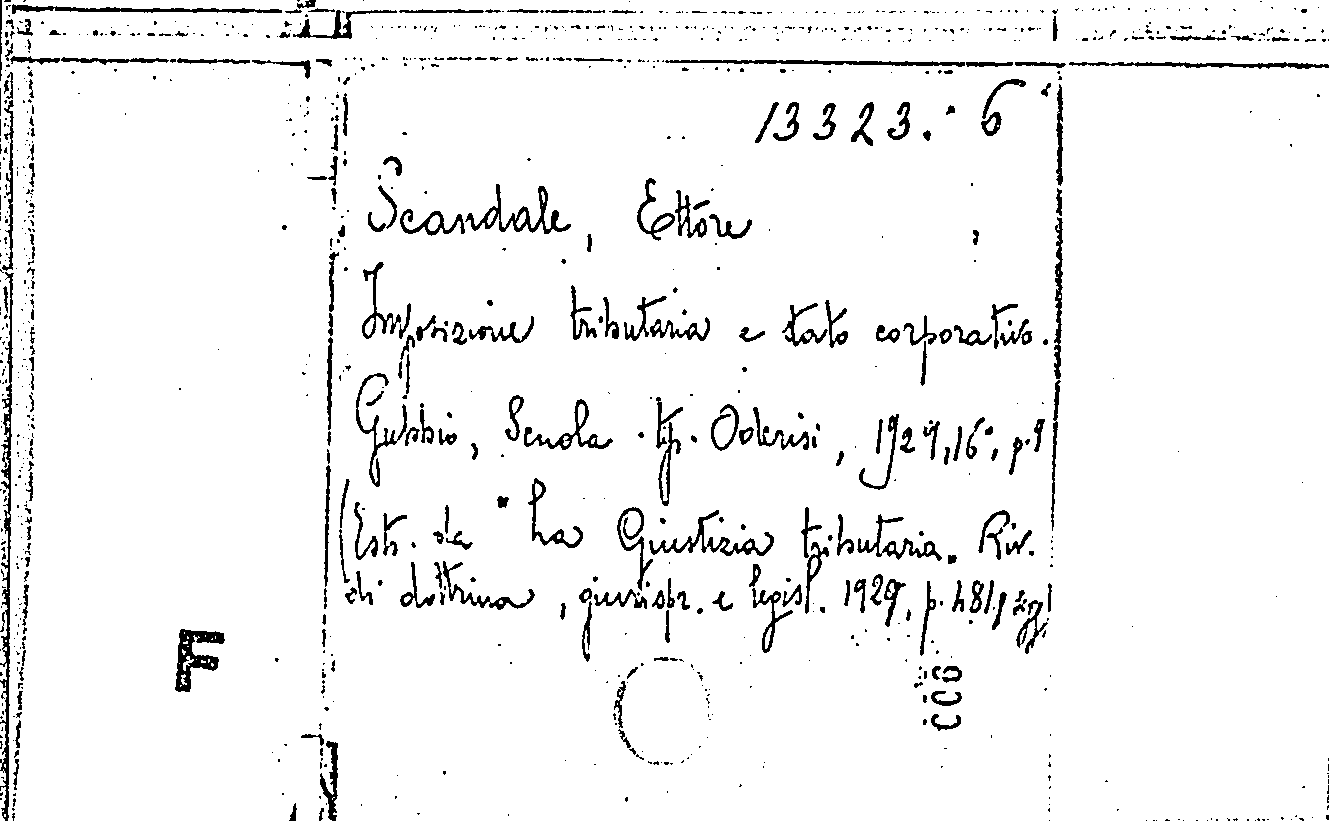 13323. 6
Scandale, Ettore
Imposizione tributaria e stato corporativo.
Gubbio, Scuola tip. Oderisi, 1929, 16°, p. 9
(Estr. da "La Giustizia tributaria. Riv.
di dottrina, giurispr. e legisl. 1929, p. 481 e sgg)
F